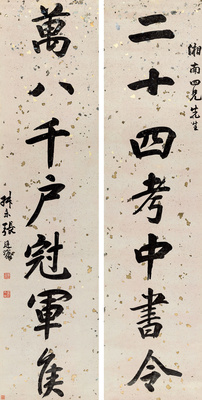 二十四考中書令
湘南四兄先生
萬八千户冠軍侯
叔未張廷濟